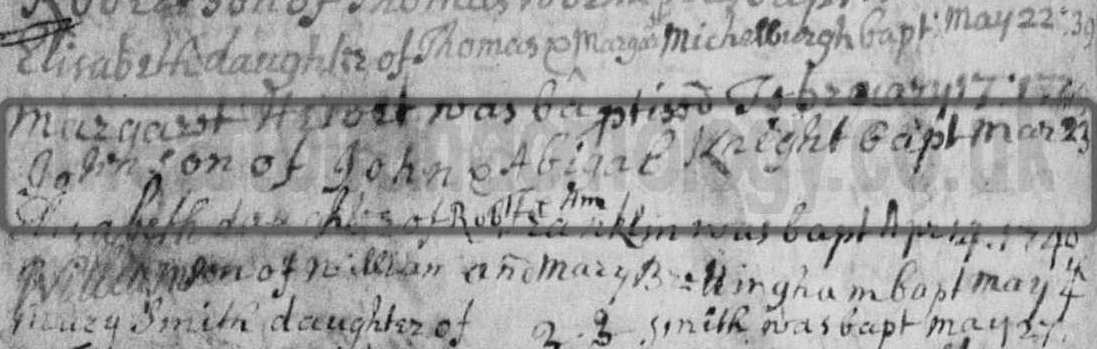 son of Thomas
Elisabeth daughter of Thomas & Margat Michelburgh bapt May 22: 39
Margaret was baptised February 17: 1740
John son of John & Abigal Knight bapt Mar 23
Elisabeth daughter of Robt & Ann Franklin was bapt Apr 14. 1740
William son of William and Mary Brettingham bapt May 4
Mary Smith daughter of Smith was bapt May 27